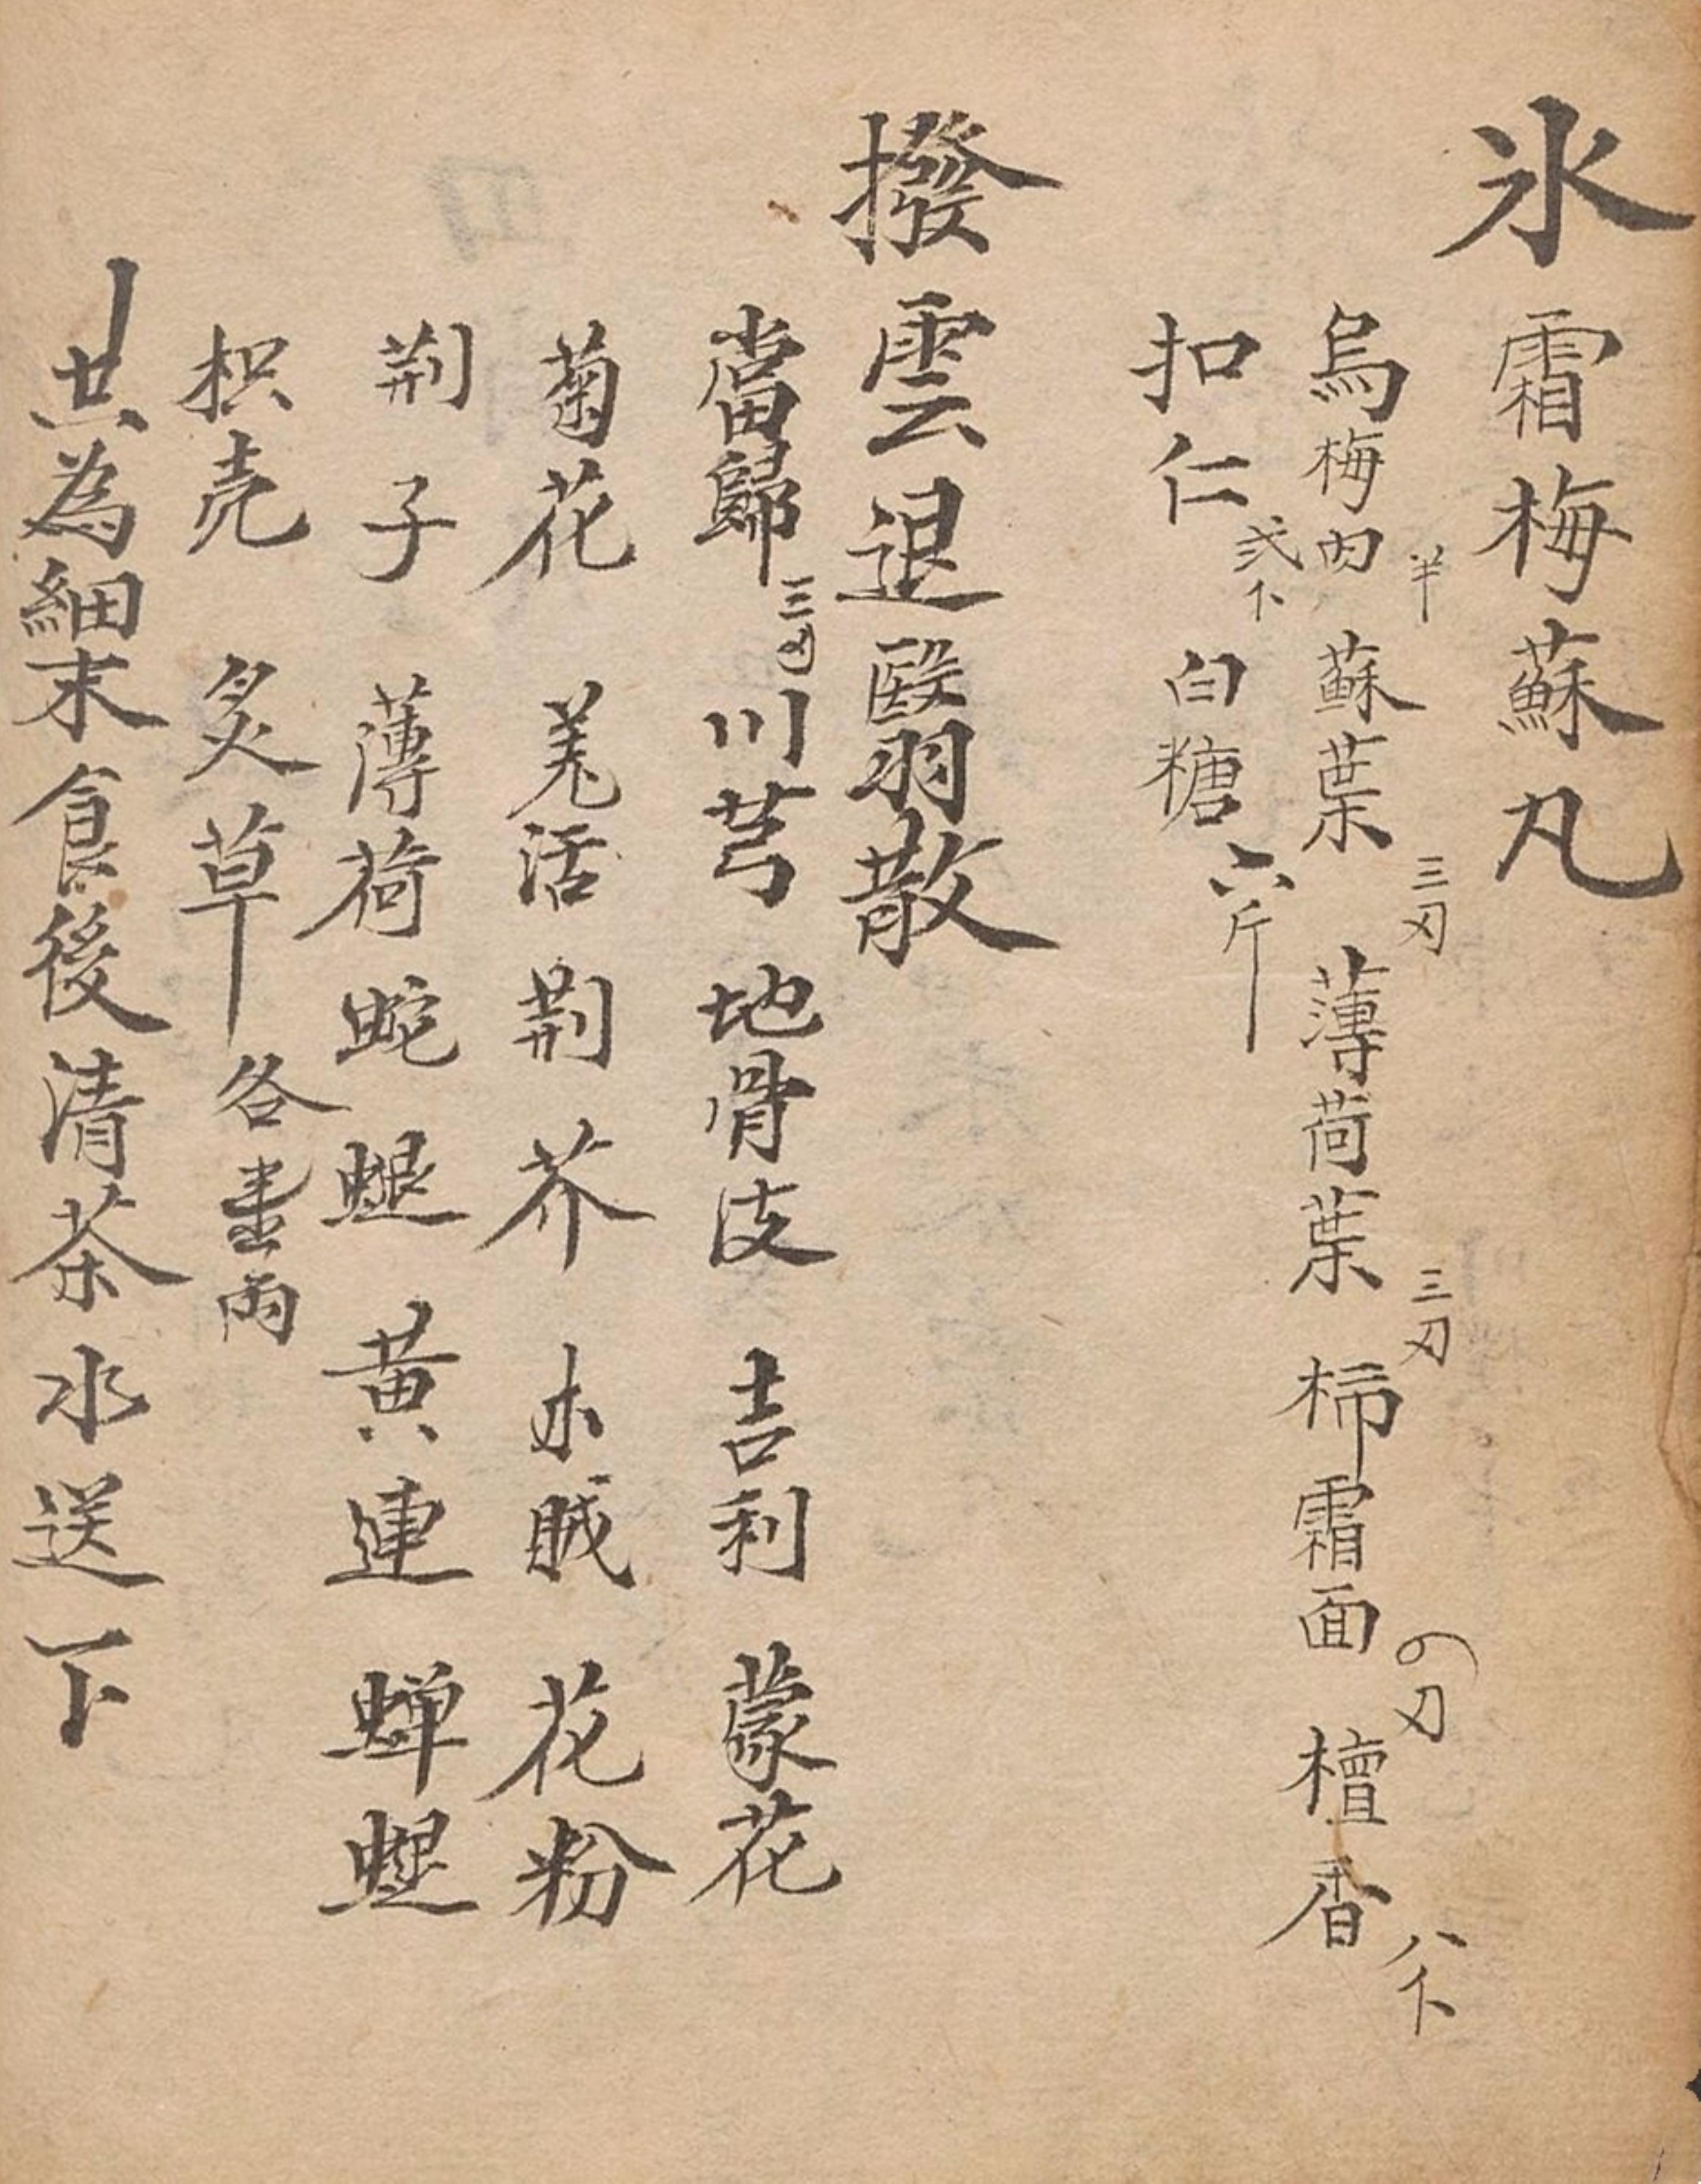 氷霜梅蘇丸
烏梅肉半蘇葉三刃薄荷葉三刃柹霜面刃檀香八卜
扣仁弍卜白糖六斤
撥雲退翳散
當歸三川芎地骨皮吉利蒙花
菊花羗活荆芥木賊花粉
荆子薄荷蛇蜕黄連蝉蜕
枳壳炙草各壹両
共為細末食後清茶水送下